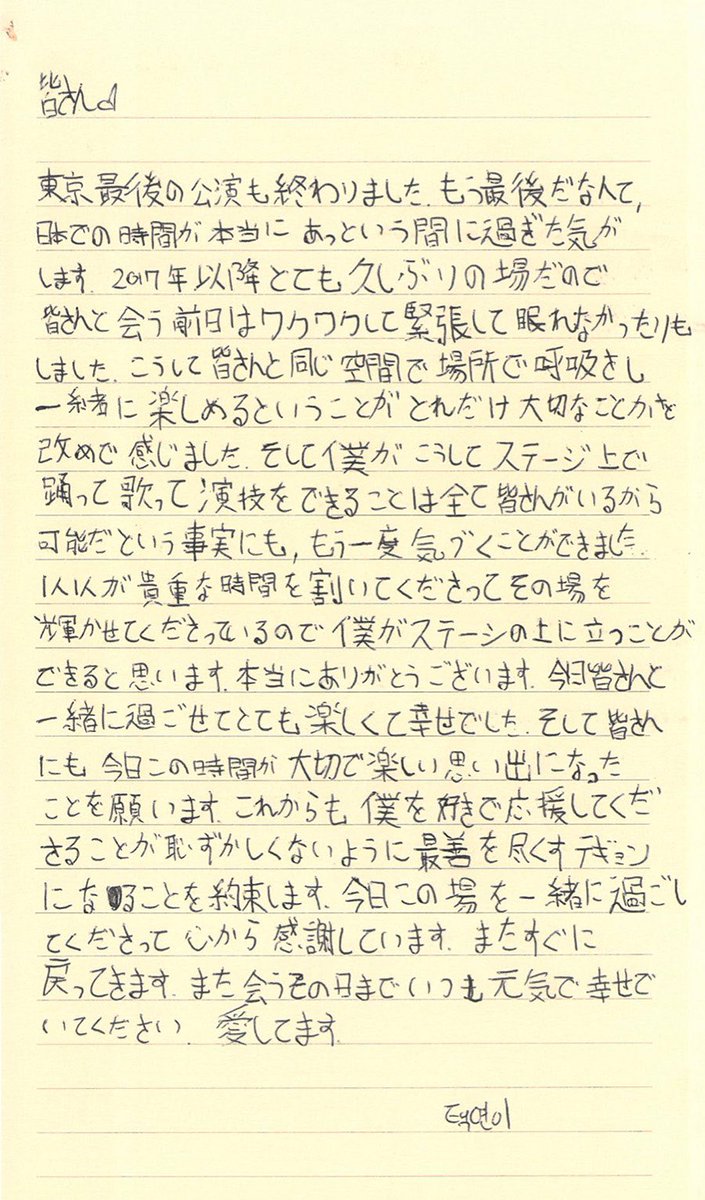 皆さんへ
東京最後の公演も終わりました.もう最後だなんて,
日本での時間が本当に あっという間に過ぎた気が
します. 2017年以降とても久しぶりの場だので
皆さんと会う前日はワクワクして緊張して眠れなかったりも
しました. こうして皆さんと同じ空間で場所で呼吸をし
一緒に楽しめるということがとれだけ大切なことかを
改めで感じました. そして僕がこうしてステージ上で
踊って歌って演技をできることは全て皆さんがいるから
可能だという事実にも, もう一度気づくことができました.
1人1人が貴重な時間を割いてくださってその場を
輝かせてくださっているので僕がステーシの上に立つことが
できると思います.本当にありがとうございます. 今日皆さんと
一緒に過ごせてとても楽しくて幸せでした. そして皆さん
にも今日この時間が大切で楽しい思い出になった
ことを願います. これからも僕を好きで応援してくだ
さることが恥ずかしくないように最善を尽くすテギョン
になることを約束します. 今日この場を一緒に過ごし
てくださって心から感謝しています. またすぐに
戻ってきます. また会うその日までいつも元気で幸せで
いてください. 愛してます.
택연이